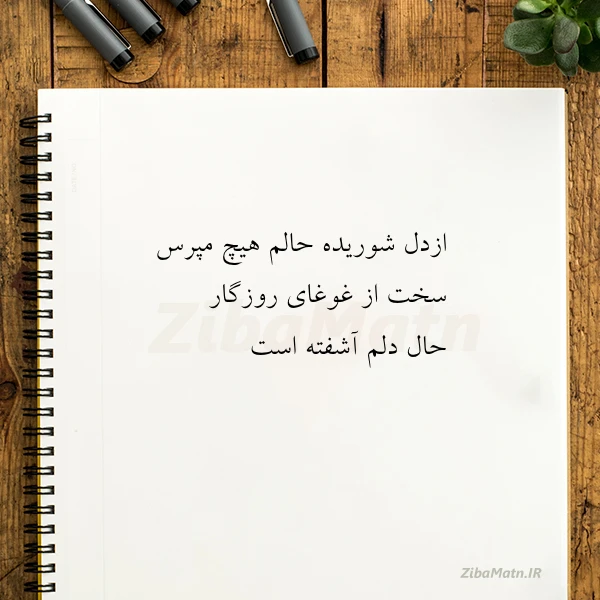 ازدل شوریده حالم هیچ مپرس
سخت از غوغای روزگار
حال دلم آشفته است
ZibaMatn
ZibaMatn.IR